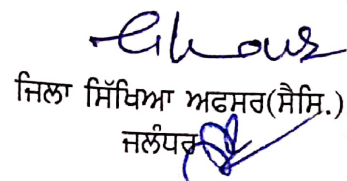 ਜਿਲਾ ਸਿੱਖਿਆ ਅਫਸਰ(ਸੈਸਿ.)
ਜਲੰਧਰ